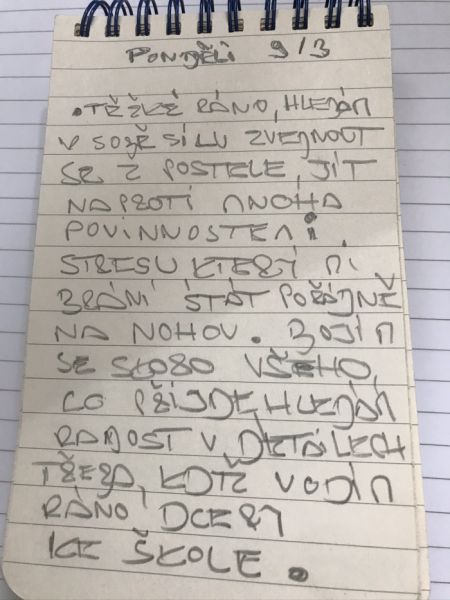 PONDĚLÍ 9/3
.TĚŽKÉ RÁNO, HLEDÁM
V SOBĚ SÍLU ZVEDNOUT
SE Z POSTELE, JÍT
NAPROTI MNOHA
POVINNOSTEM I
STRESU KTERÝ MI
BRÁNÍ STÁT POŘÁDNĚ
NA NOHOU. BOJÍM
SE SKORO VŠEHO,
CO PŘIJDE, HLEDÁM
RADOST V DETÁLECH
TŘEBA, KDYŽ VODÍM
RÁNO DCERY
KE ŠKOLE.